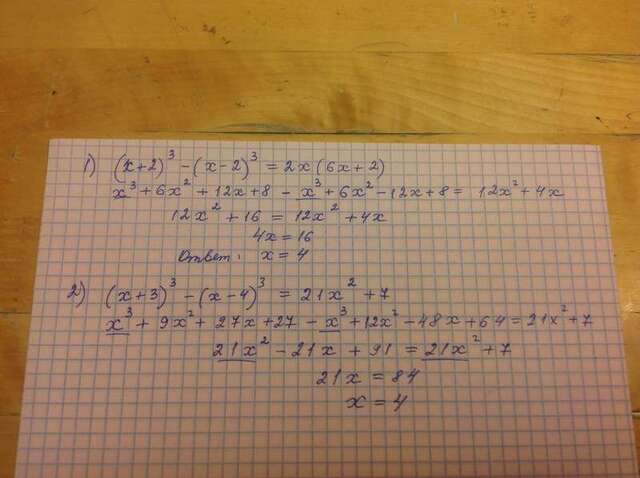 1) (x+2)³ - (x-2)³ = 2x(6x+2)
x³ + 6x² + 12x + 8 - x³ + 6x² - 12x + 8 = 12x² + 4x
12x² + 16 = 12x² + 4x
4x = 16
Ответ: x = 4
2) (x+3)³ - (x-4)³ = 21x² + 7
x³ + 9x² + 27x + 27 - x³ + 12x² - 48x + 64 = 21x² + 7
21x² - 21x + 91 = 21x² + 7
21x = 84
x = 4